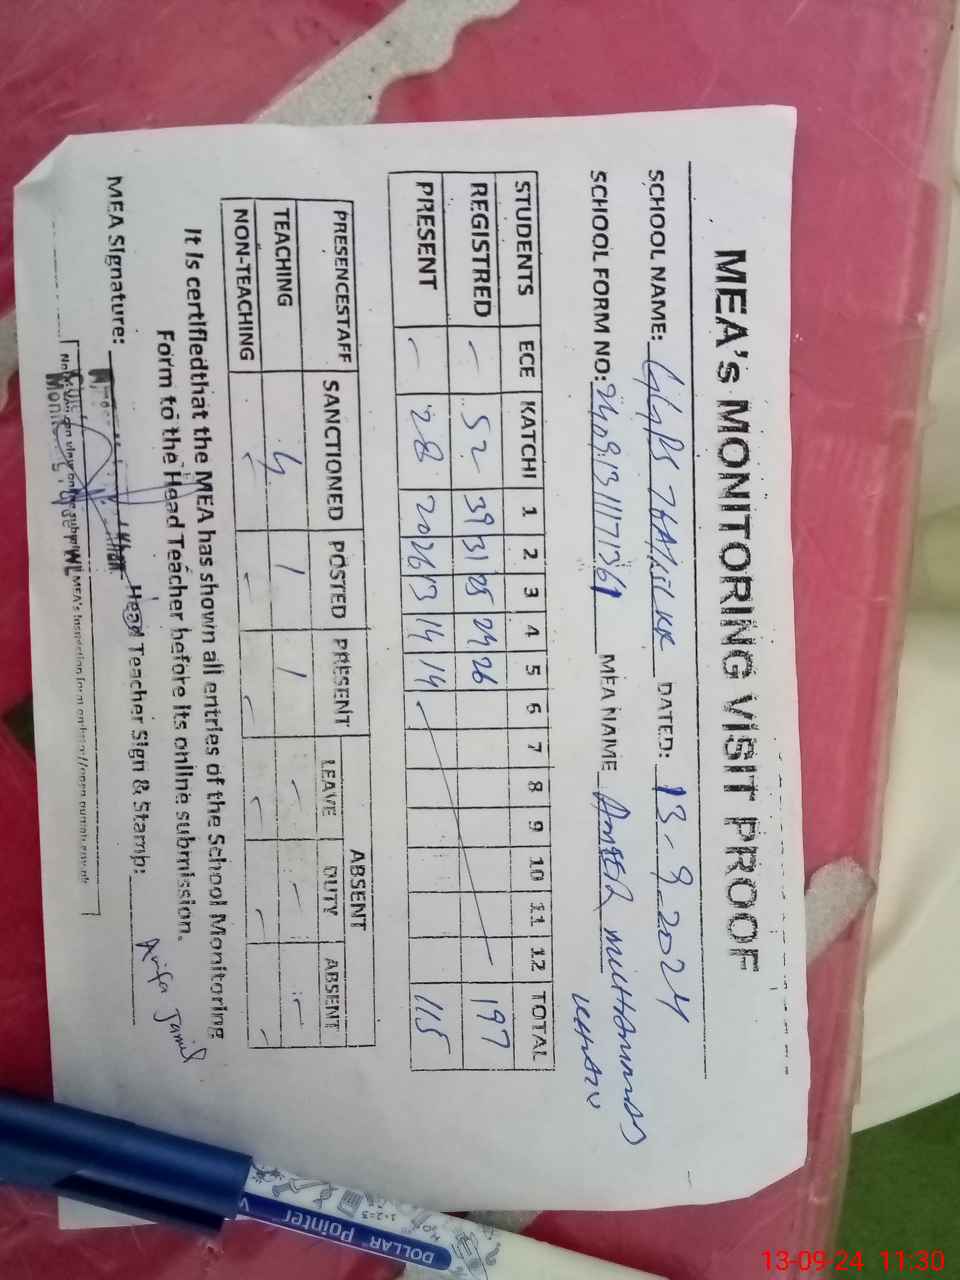 MEA's MONITORING VISIT PROOF
SCHOOL NAME: DATED: 13-9-2024
SCHOOL FORM NO: MEA NAME AMEER MUHAMMAD
KHAN
STUDENTS ECE KATCHI 1 2 3 4 5 6 7 8 9 10 11 12 TOTAL
REGISTRED - 52 39 31 25 24 26 197
PRESENT - 28 20 26 13 14 14 115
PRESENCESTAFF SANCTIONED POSTED PRESENT/ ABSENT
LEAVE DUTY ABSENT
TEACHING 4 1 1 - - -
NON-TEACHING - - - - - -
It is certifiedthat the MEA has shown all entries of the School Monitoring
Form to the Head Teacher before its online submission.
Arifa Jamil
MEA Signature: Head Teacher Sign & Stamp:
Khan
DOLLAR Pointer
13-09-24 11:30